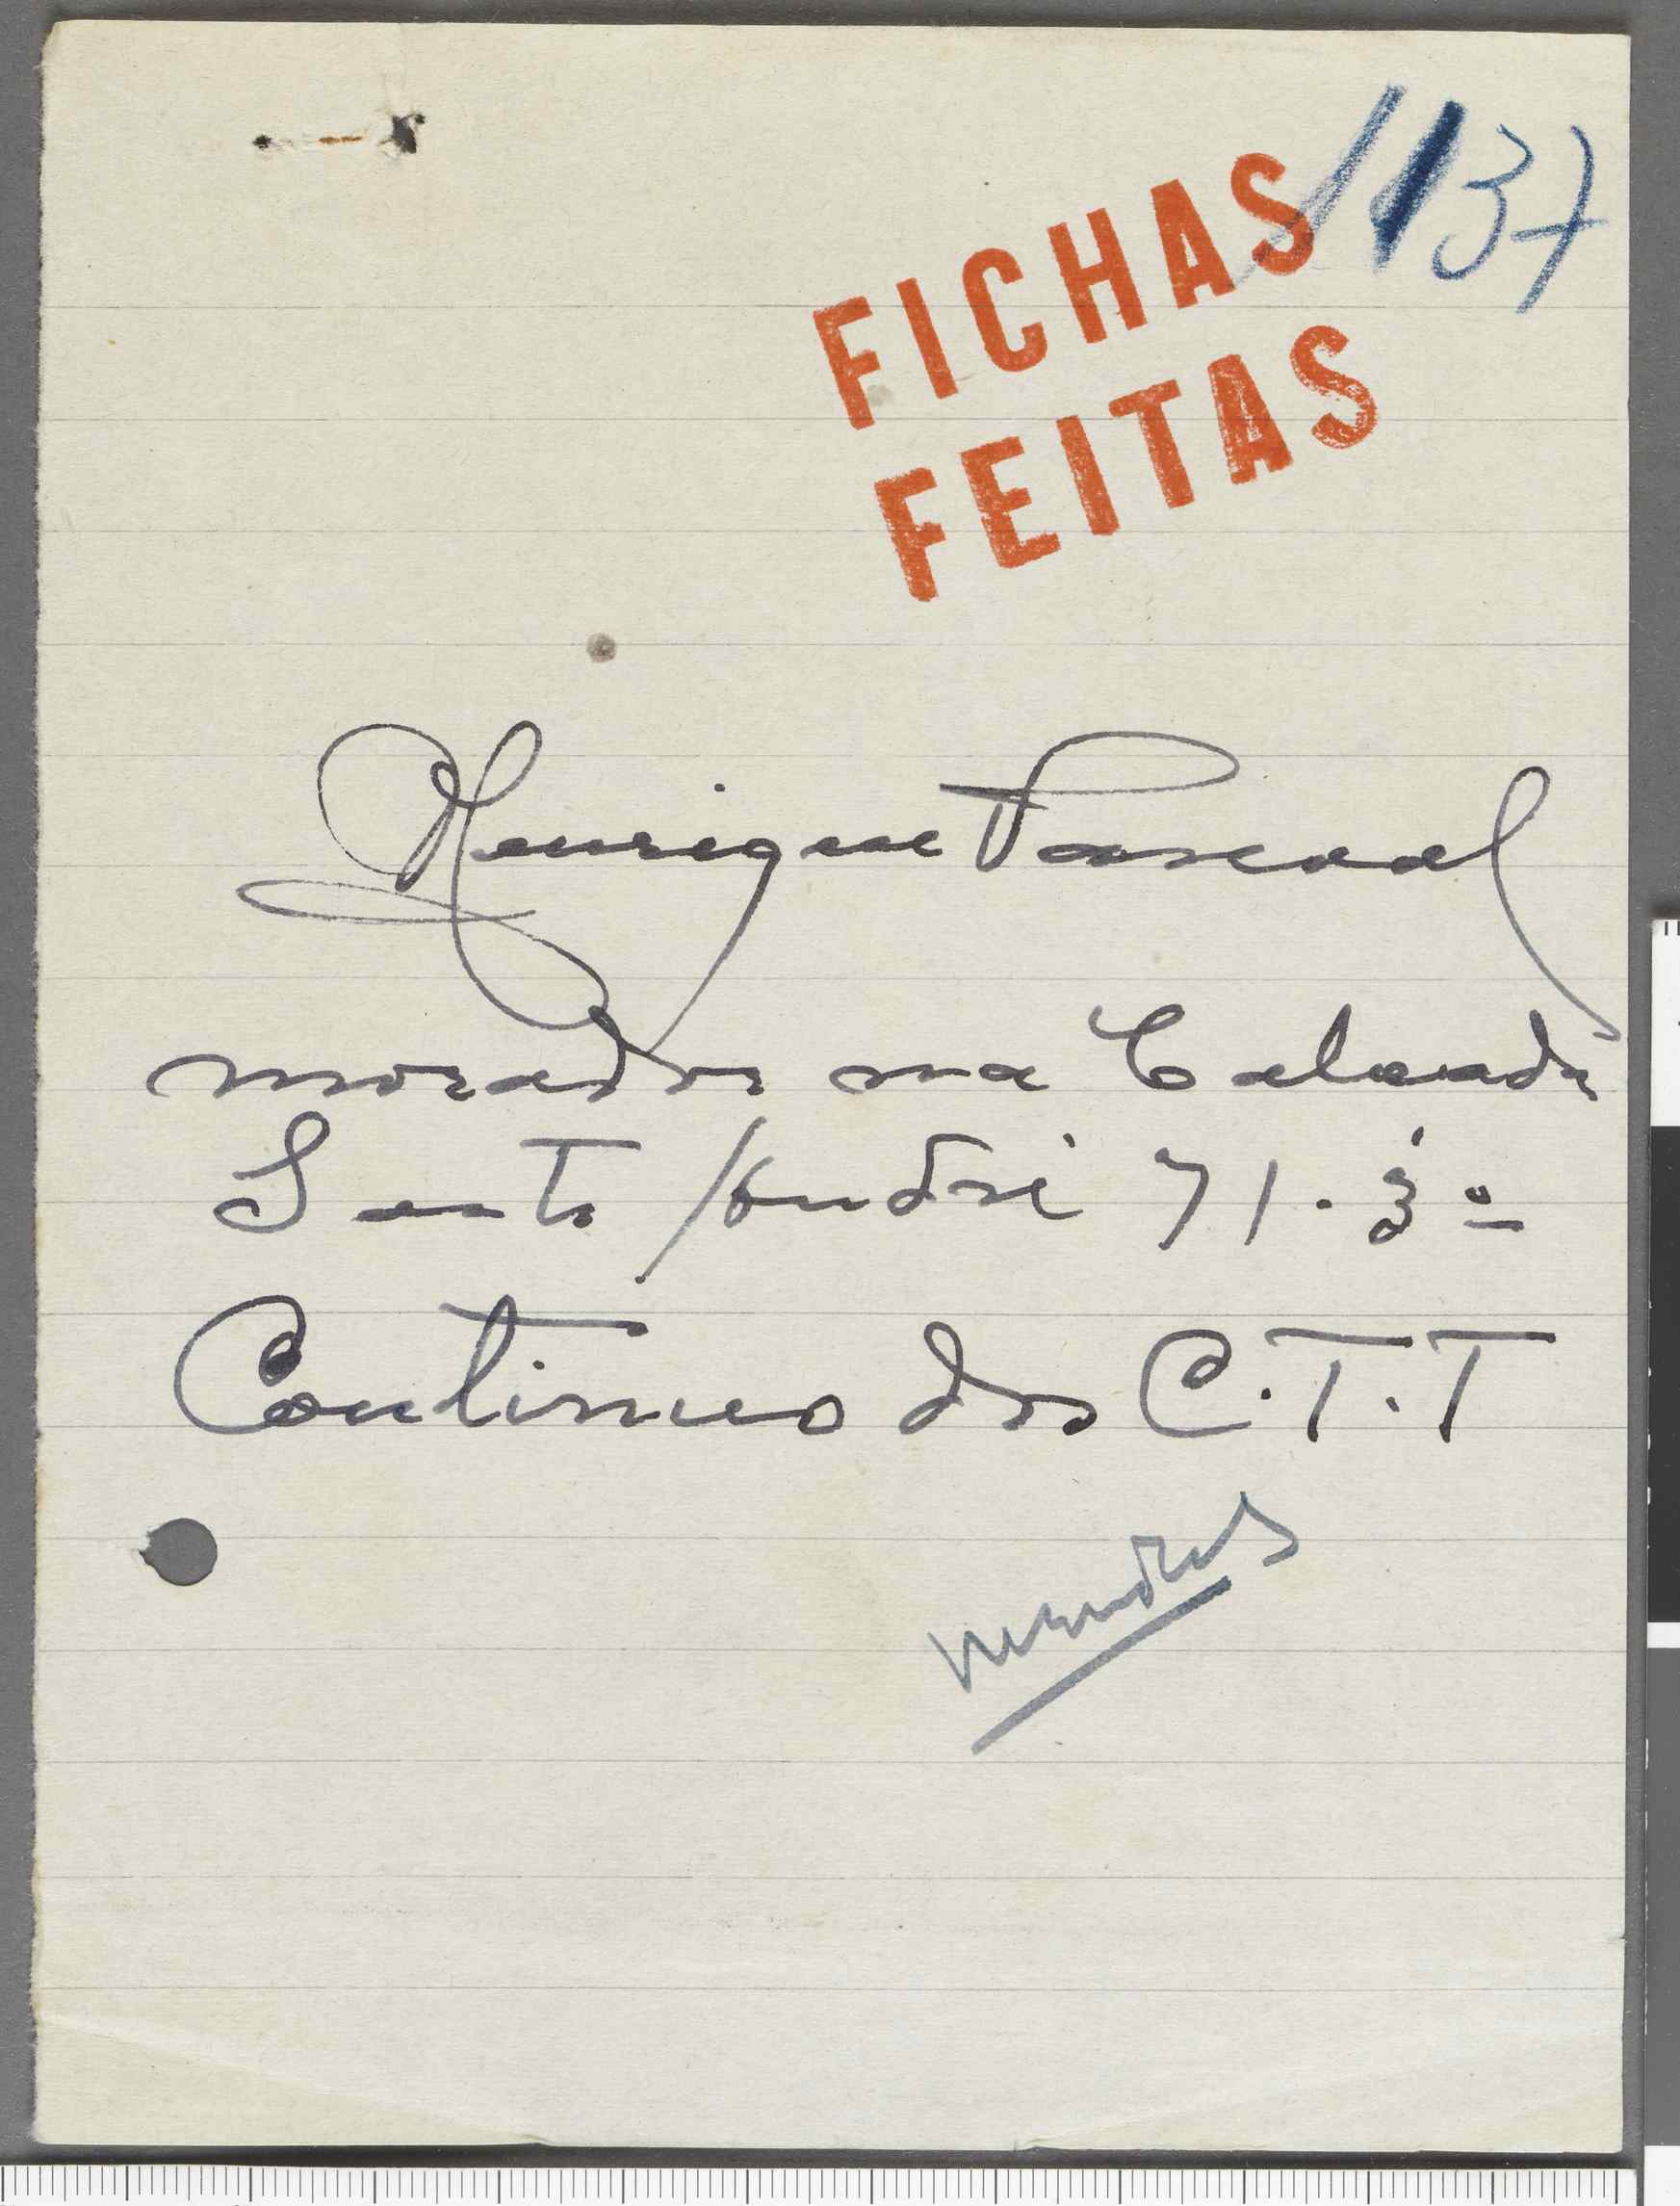 137
FICHAS
FEITAS
Henrique Pascoal
morador na Calçada
Santo André 71. 3º
Continuo dos C.T.T